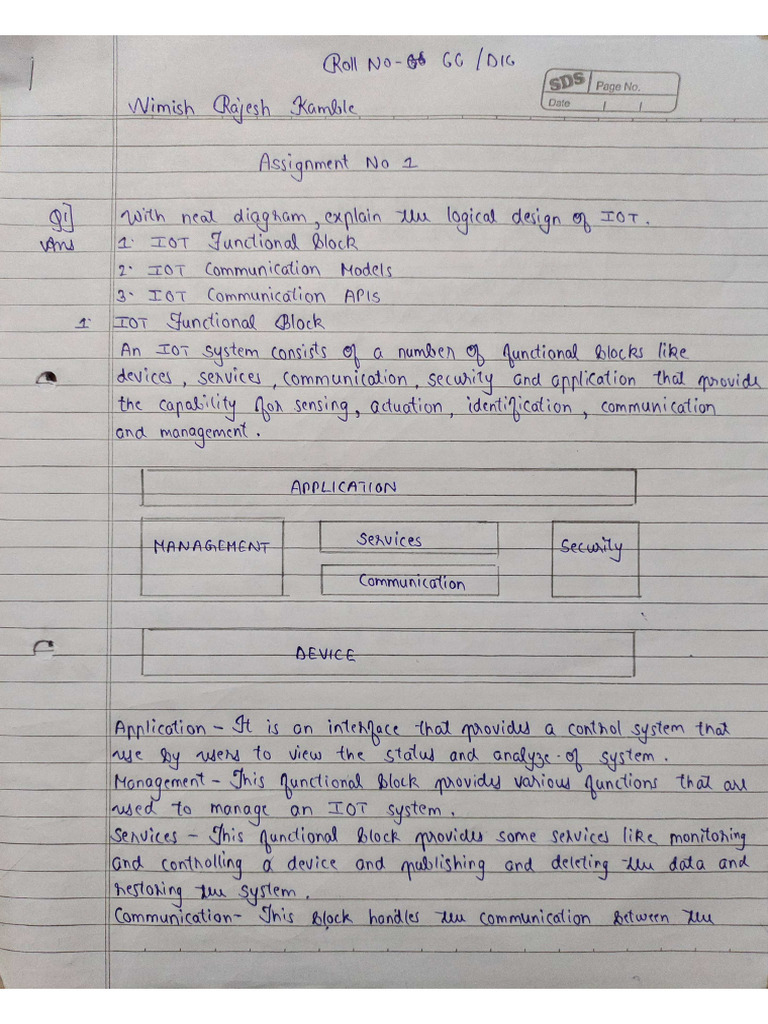 Roll No - 66 / D1G
SDS Page No.
Date
Nimish Rajesh Kamble
Assignment No 1
Q1] With neat diagram, explain the logical design of IOT.
Ans 1. IOT Functional Block
2. IOT Communication Models
3. IOT Communication APIs
1. IOT Functional Block
An IOT system consists of a number of functional blocks like
devices, services, communication, security and application that provide
the capability for sensing, actuation, identification, communication
and management.
APPLICATION
MANAGEMENT Services Security
Communication
DEVICE
Application - It is an interface that provides a control system that
use by users to view the status and analyze of system.
Management - This functional block provides various functions that are
used to manage an IOT system.
Services - This functional block provides some services like monitoring
and controlling a device and publishing and deleting the data and
restoring the system.
Communication - This block handles the communication between the